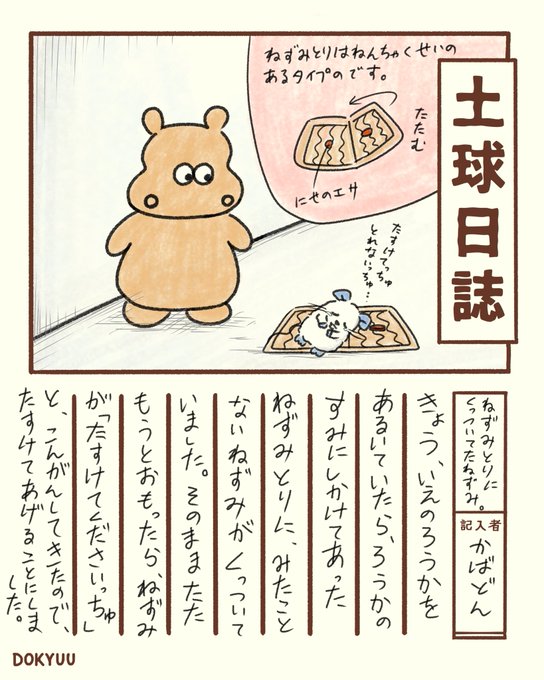 土球日誌
ねずみとりはねんちゃくせいの
あるタイプのです。
たたむ
にせのエサ
たすけてっちゅ
とれないっちゅ…
ねずみとりに
くっついてたねずみ。
記入者
かばどん
きょう、いえのろうかを
あるいていたら、ろうかの
すみにしかけてあった
ねずみとりに、みたこと
ないねずみがくっついて
いました。そのままたた
もうとおもったら、ねずみ
が「たすけてくださいっちゅ」
と、こんがんしてきたので、
たすけてあげることにしま
した。
DOKYUU